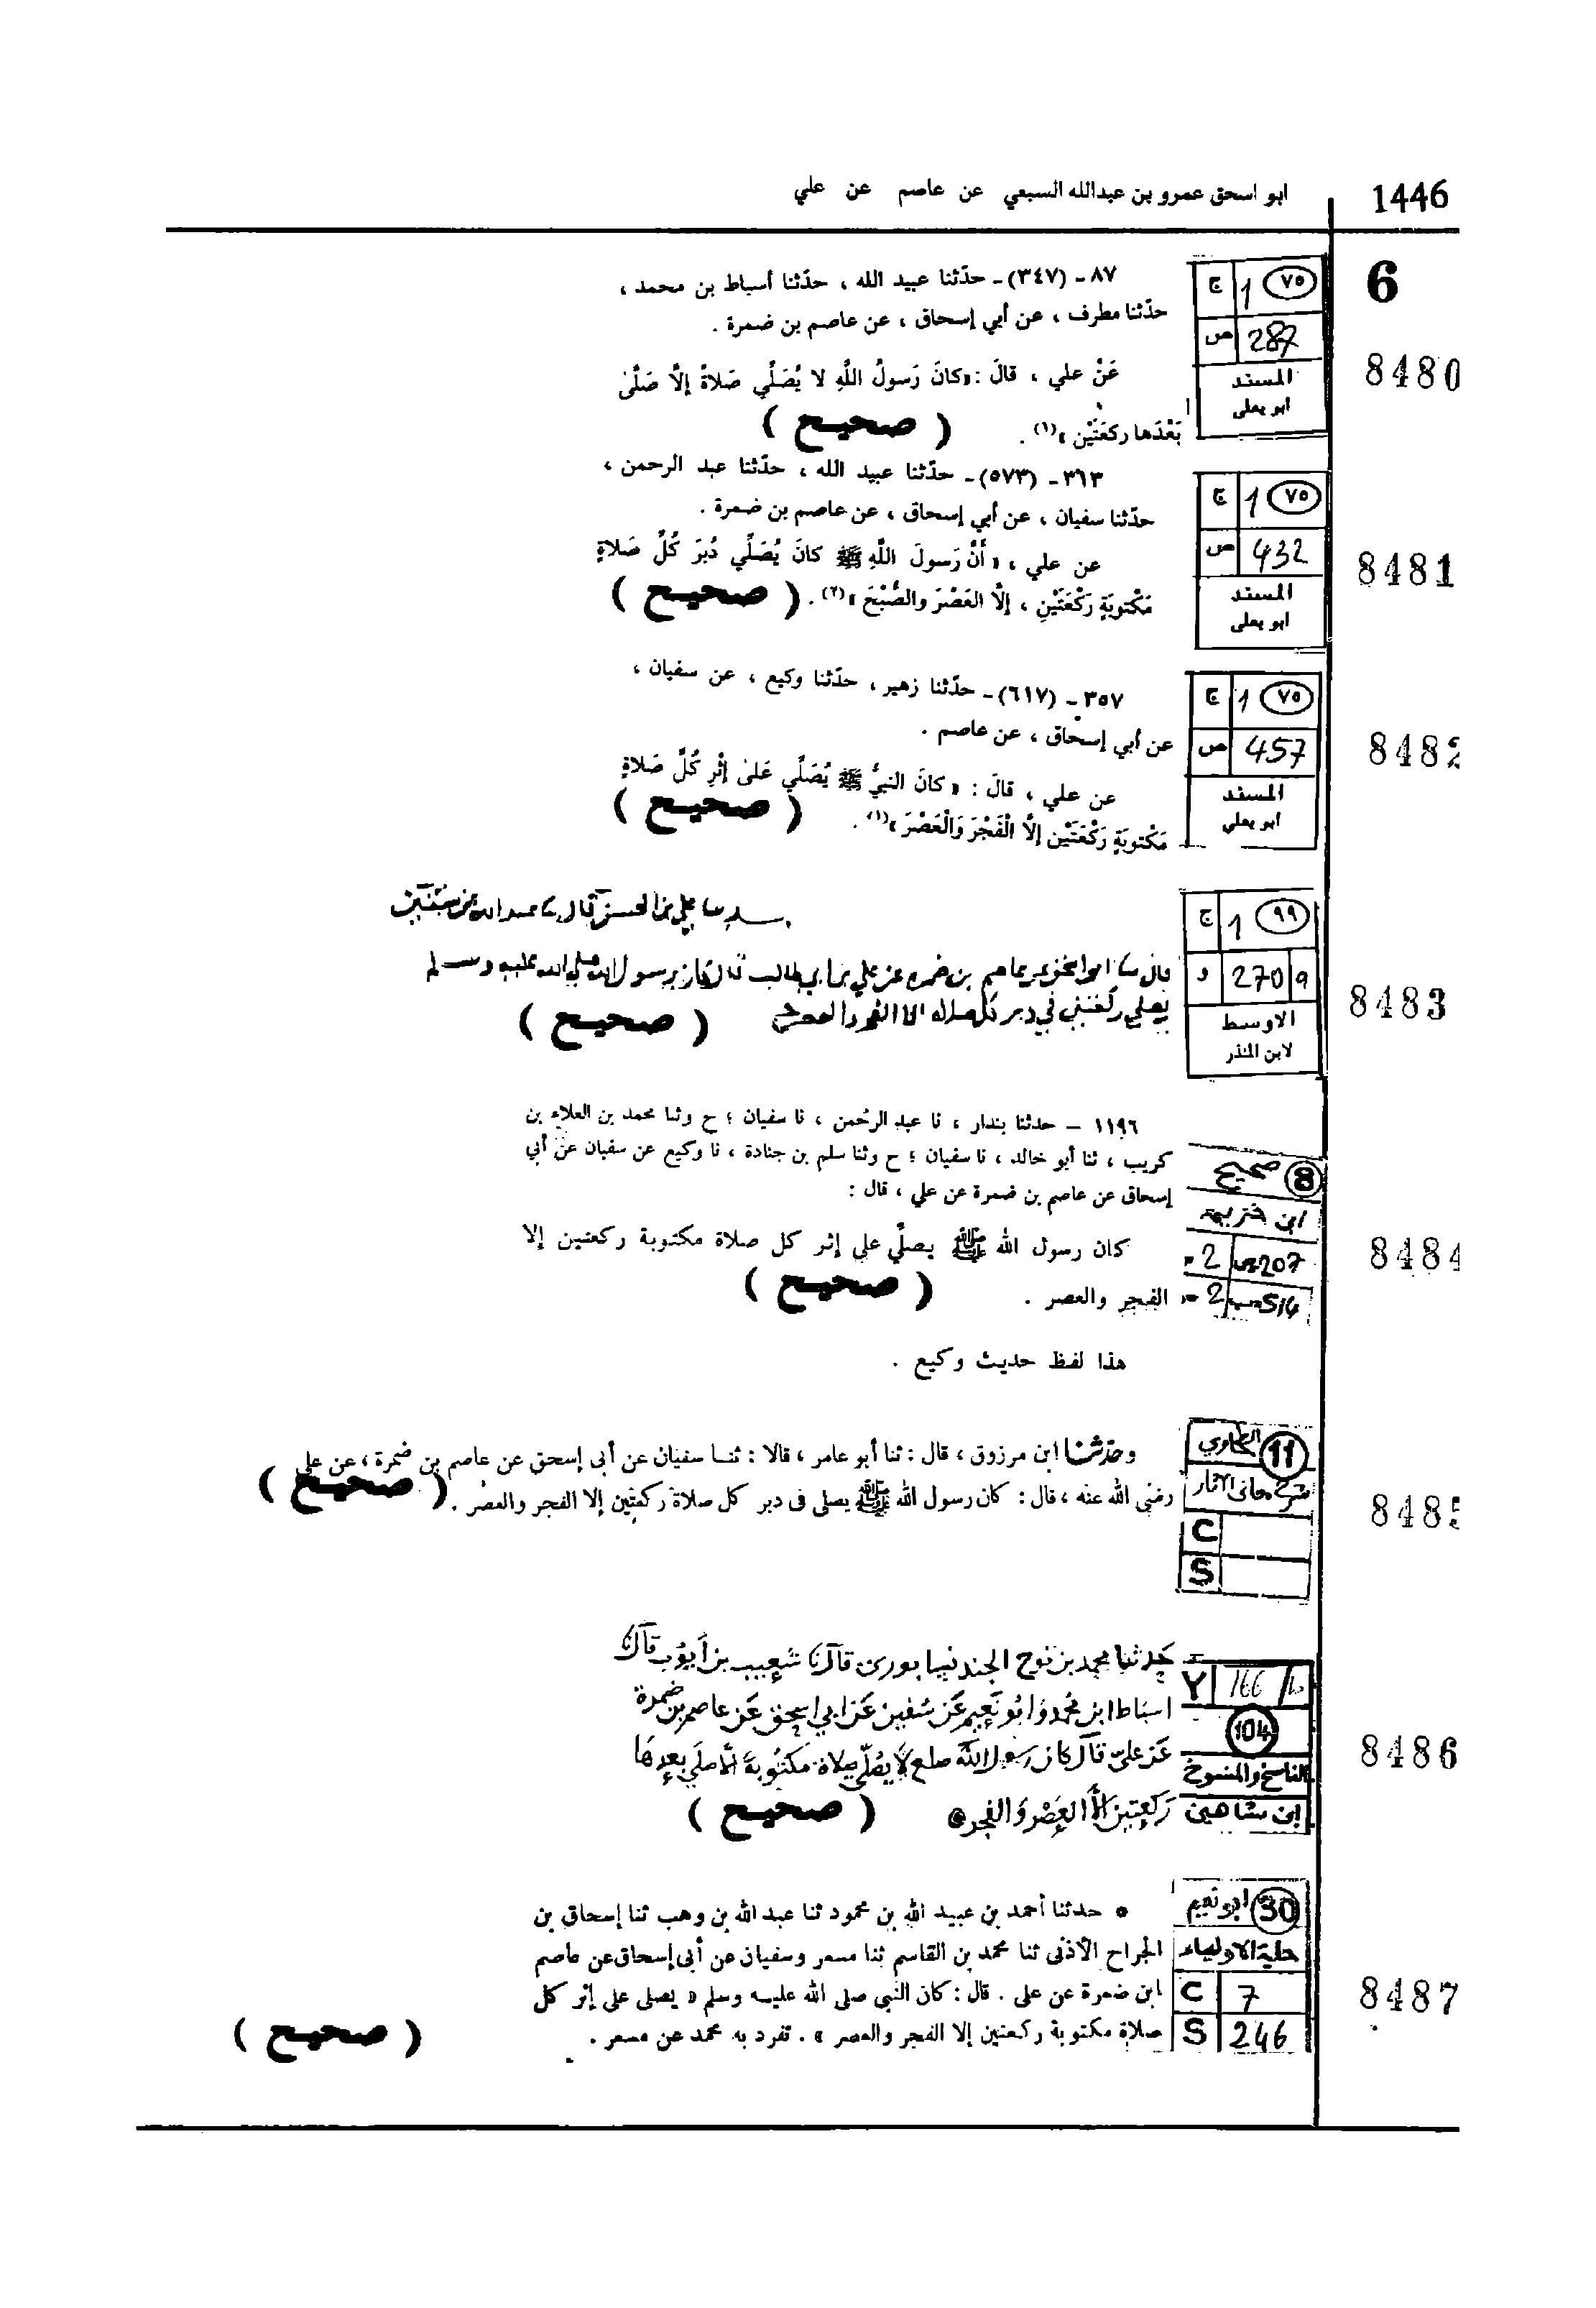 1446
ابو اسحق عمرو بن عبدالله السبعي عن عاصم عن علي
6
ج 1 ٧٥
ص 287
المسند
ابو يعلى
8480
٨٧ - (٣٤٧) - حدّثنا عبيد الله ، حدّثنا أسباط بن محمد ،
حدّثنا مطرف ، عن أبي إسحاق ، عن عاصم بن ضمرة .
عَنْ علي ، قالَ : «كانَ رَسولُ اللَّهِ لا يُصَلِّي صَلاةً إلّا صَلَّىٰ
بَعْدَها ركعَتَيْن »(١) .
( صحيح )
ج 1 ٧٥
ص 432
المسند
ابو يعلى
8481
٣٦٣ - (٥٧٣) - حدّثنا عبيد الله ، حدّثنا عبد الرحمن ،
حدّثنا سفيان ، عن أبي إسحاق ، عن عاصم بن ضمرة .
عن علي ، « أَنَّ رَسولَ اللَّهِ ﷺ كانَ يُصَلِّي دُبَرَ كُلِّ صَلاةٍ
مَكْتوبَةٍ رَكْعَتَيْنِ ، إلّا العَصْرَ والصُّبْحَ »(٢) . ( صحيح )
ج 1 ٧٥
ص 457
المسند
ابو يعلي
8482
٣٥٧ - (٦١٧) - حدّثنا زهير ، حدّثنا وكيع ، عن سفيان ،
عن أبي إسحاق ، عن عاصم .
عن علي ، قالَ : « كانَ النبيُّ ﷺ يُصَلِّي عَلىٰ إثْرِ كُلِّ صَلاةٍ
مَكْتوبَةٍ رَكْعَتَيْن إلّا الْفَجْرَ وَالْعَصْرَ »(١) .
( صحيح )
ج 1 ٩٩
و 270 9
الاوسط
لابن المنذر
8483
علي بن الحسن قال
قال عن عاصم بن ضمره عن علي بن ابي طالب قال كان رسول الله صلى الله عليه وسلم
يصلي ركعتين في دبر كل صلاة الا الفجر والعصر
( صحيح )
8 صحيح
ابن خزيمة
2 207ص
2 514
8484
١١٩٦ – حدثنا بندار ، نا عبد الرحمن ، نا سفيان ؛ ح وثنا محمد بن العلاء بن
كريب ، ثنا أبو خالد ، نا سفيان ؛ ح وثنا سلم بن جنادة ، نا وكيع عن سفيان عن أبي
إسحاق عن عاصم بن ضمرة عن علي ، قال :
كان رسول الله ﷺ يصلّي على إثر كل صلاة مكتوبة ركعتين إلا
الفجر والعصر .
( صحيح )
هذا لفظ حديث وكيع .
11 الطحاوي
شرح معاني الاثار
C
S
8485
وحدّثنا ابن مرزوق ، قال : ثنا أبو عامر ، قالا : ثنا سفيان عن أبى إسحق عن عاصم بن ضمرة ، عن على
رضي الله عنه ، قال : كان رسول الله ﷺ يصلى فى دبر كل صلاة ركعتين إلا الفجر والعصر . ( صحيح )
Y 166
104
الناسخ والمنسوخ
ابن شاهين
8486
حدثنا محمد بن نوح الجندنيسابوري قال نا شعيب بن أيوب قال نا
اسباط ابن محمد وابو نعيم عن سفين عن ابي اسحق عن عاصم بن ضمرة
عن علي قال كان رسول الله صلعم لا يصلي صلاة مكتوبة الا صلى بعدها
ركعتين الا العصر والفجر
( صحيح )
30 ابو نعيم
حلية الاولياء
C 7
S 246
8487
* حدثنا أحمد بن عبيد الله بن محمود ثنا عبد الله بن وهب ثنا إسحاق بن
الجراح الأذنى ثنا محمد بن القاسم ثنا مسعر وسفيان عن أبى إسحاق عن عاصم
ابن ضمرة عن على . قال : كان النبى صلى الله عليه وسلم « يصلى على إثر كل
صلاة مكتوبة ركعتين إلا الفجر والعصر » . تفرد به محمد عن مسعر .
( صحيح )